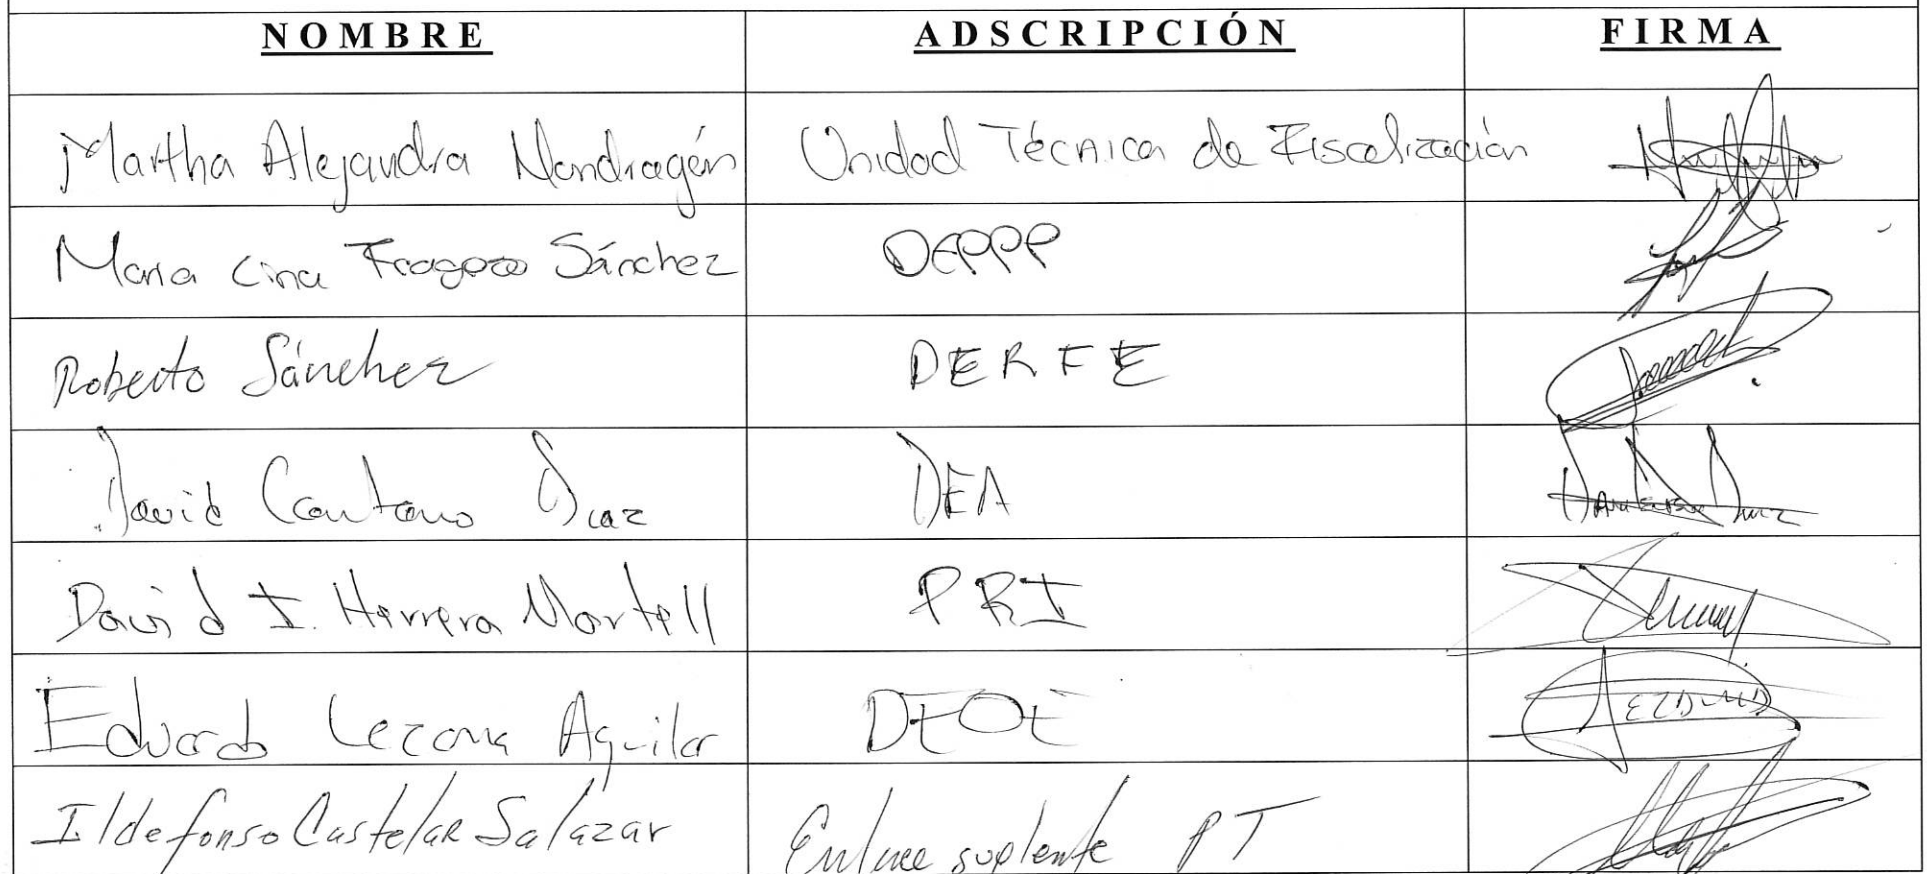 NOMBRE ADSCRIPCIÓN FIRMA
Martha Alejandra Mondragón Unidad Técnica de Fiscalización
Maria Lina Fragoso Sánchez DEPPP
Roberto Sánchez DERFE
David Cantano Diaz DEA
David I. Herrera Martell PRI
Eduardo Lezama Aguilar DEOE
Ildefonso Castelar Salazar Enlace suplente PT